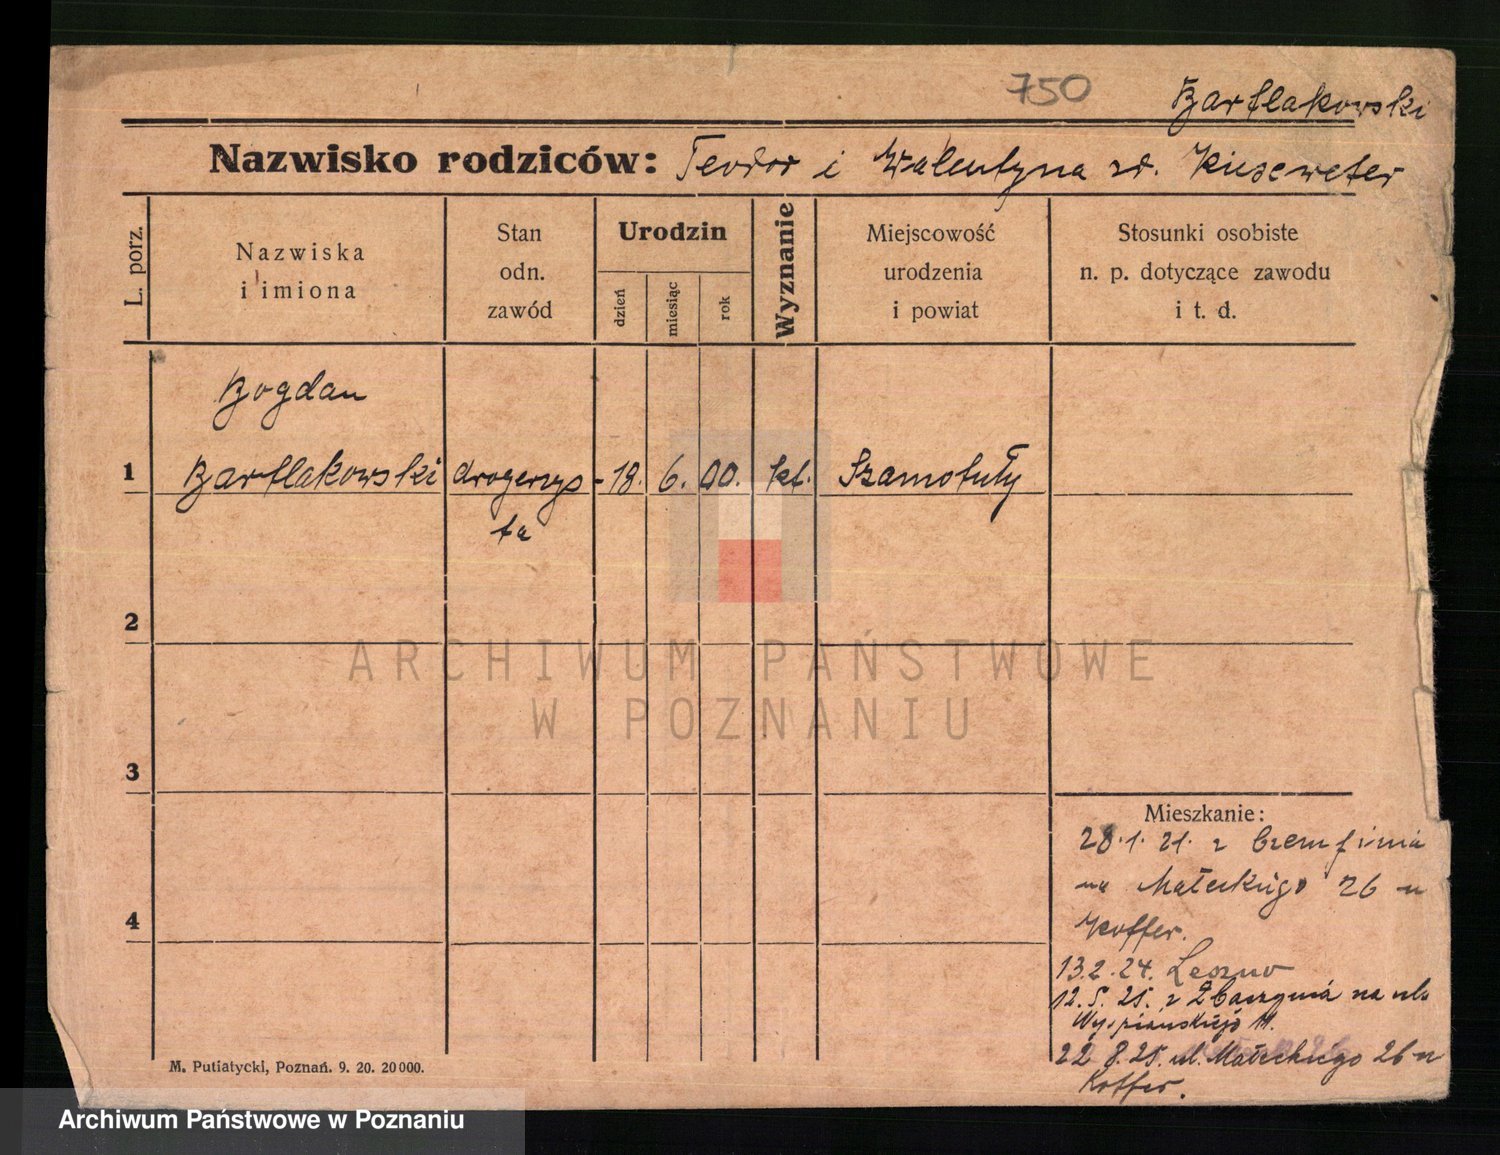 750
Bartlakowski
Nazwisko rodziców: Teodor i Walentyna zd. Kieseweter
L. porz.
Nazwiska
i imiona
Stan
odn.
zawód
Urodzin
dzień
miesiąc
rok
Wyznanie
Miejscowość
urodzenia
i powiat
Stosunki osobiste
n. p. dotyczące zawodu
i t. d.
Bogdan
1 Bartlakowski drogerzys- 18. 6. 00. kt. Szamotuły
ta
2
3
4
Mieszkanie:
28.1.21. z
na Małeckiego 26 u
Koffer.
13.2.24. Leszno
12.5.25. z Zbąszynia na ul.
Wyspiańskiego 11.
22.8.25. ul. Małeckiego 26 u
Koffer.
M. Putiatycki, Poznań. 9. 20. 20000.
ARCHIWUM PAŃSTWOWE
W POZNANIU
Archiwum Państwowe w Poznaniu